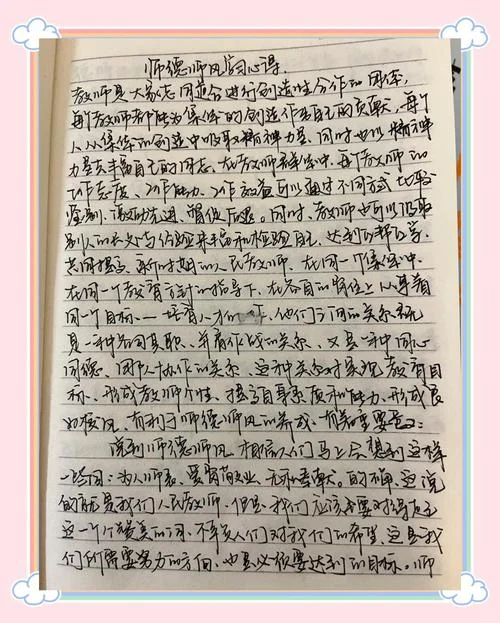 师德师风学习心得
教师是大家志同道合进行创造性合作的团体,
每个教师都能为集体的创造作出自己的贡献,每个
人从集体的创造中吸取精神力量,同时也以精神
力量去丰富自己的同志。在教师群体中,每个教师的
工作态度、工作能力、工作效益可以通过不同方式比较
鉴别,激励先进,督促后进。同时,教师也可以吸取
别人的长处与经验来丰富和检验自己,达到互帮互学,
共同提高。新时期的人民教师,在同一个集体中,
在同一个教育方针的指导下,在各自的岗位上从事着
同一个目标——培育人才的工作,他们之间的关系就
是一种各司其职、并肩作战的关系,又是一种同心
同德、团结协作的关系。这种关系对实现教育目
标、形成教师个性、提高自身素质和能力、形成良
好校风,有利于师德师风的养成,有着重要意义。
说到师德师风,相信人们马上会想到这样
一些词:为人师表、爱岗敬业、无私奉献。的确,这说
的就是我们人民教师。但是,我们应该要对得起
这一个个最美的词,不辜负人们对我们的希望,这是我
们所需要努力的方向,也是必须要达到的目标。师